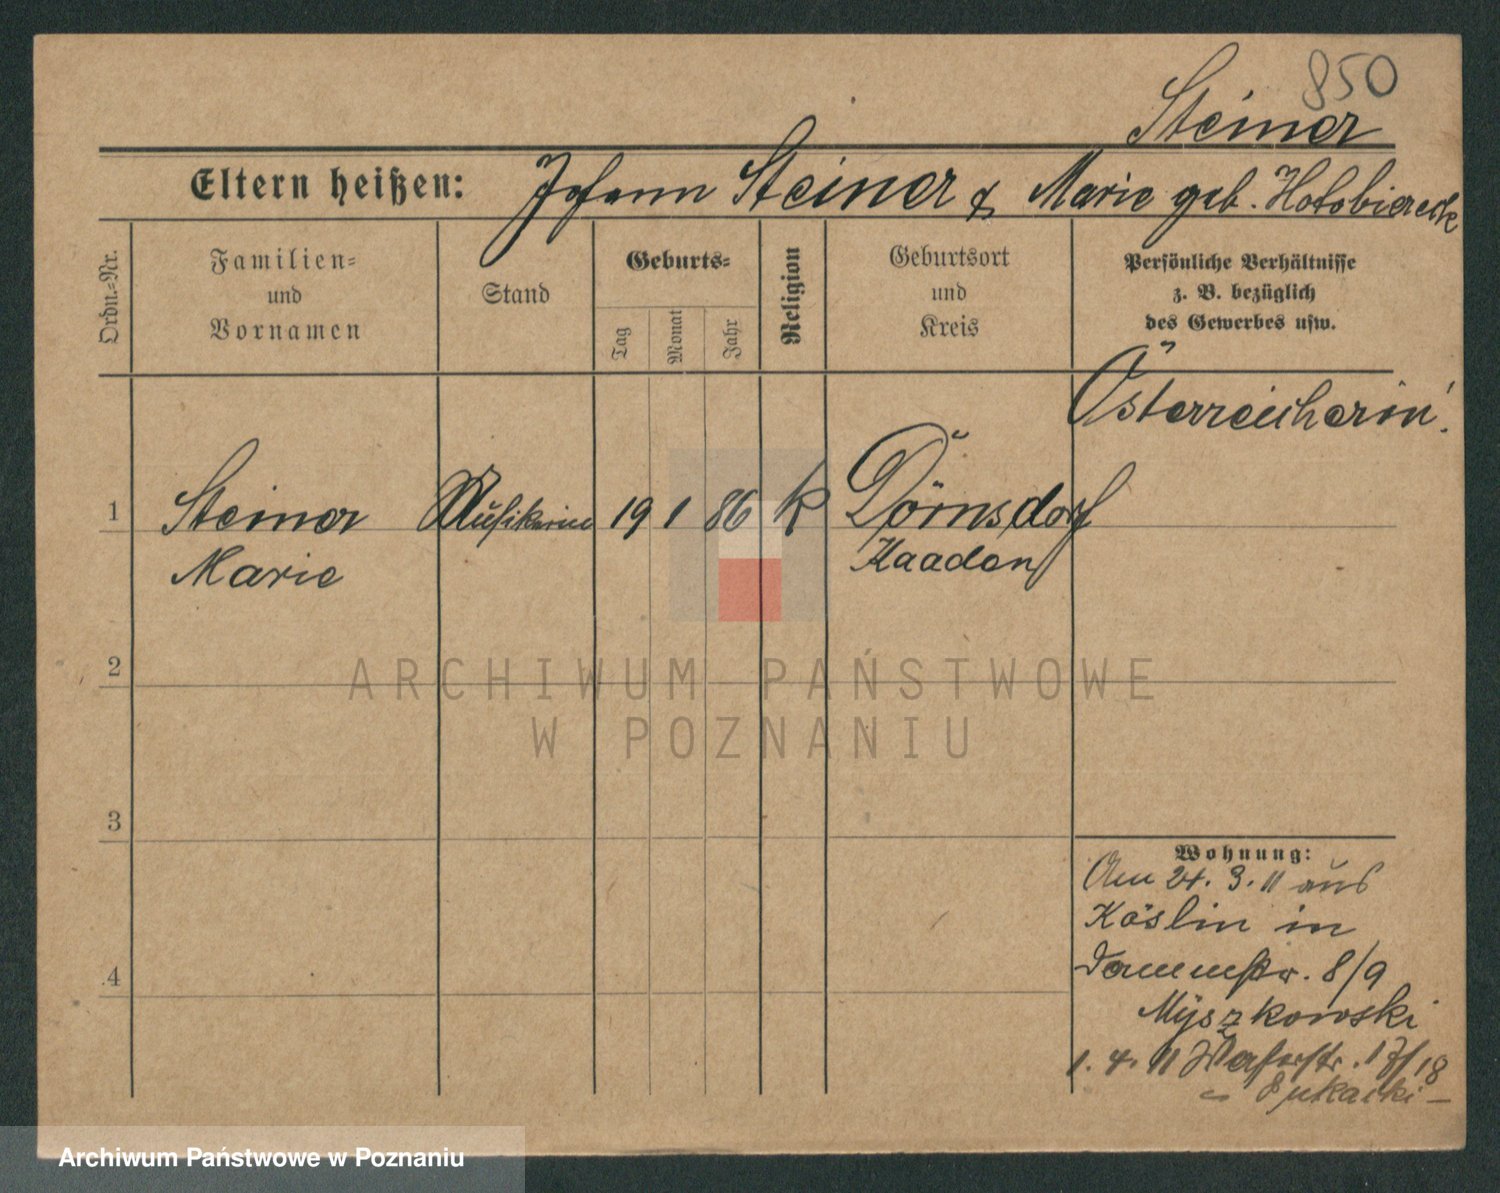 850
Steiner
Eltern heißen: Johann Steiner & Marie geb. Hotobiereck
Ordn.=Nr.
Familien=
und
Vornamen
Stand
Geburts=
Tag
Monat
Jahr
Religion
Geburtsort
und
Kreis
Persönliche Verhältnisse
z. B. bezüglich
des Gewerbes usw.
Österreicherin.
1 Steiner Musikerin 19 1 86 k Dörnsdorf
Marie Kaaden
2
3
4
Wohnung:
Am 24. 3. 11 aus
Köslin in
Dammstr. 8/9
Myszkowski
1. 4. 11 17/18
ARCHIWUM PAŃSTWOWE
W POZNANIU
Archiwum Państwowe w Poznaniu